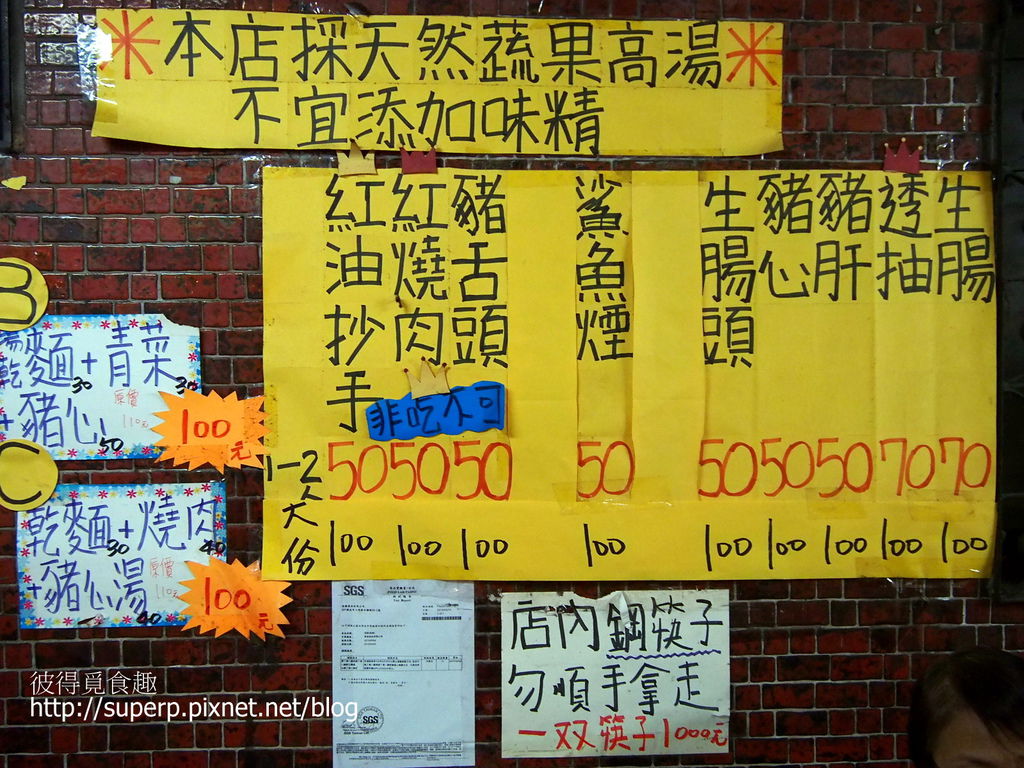 ※本店採天然蔬果高湯※
不宜添加味精
紅油抄手 50 100
紅燒肉 50 100
豬舌頭 50 100
非吃不可
鯊魚煙 50 100
生腸頭 50 100
豬心 50 100
豬肝 50 100
透抽 70 100
生腸 70 100
1-2
大份
B
湯乾麵30+青菜30
+豬心50
原價110元
100元
C
乾麵30+燒肉40
+豬心湯40
原價110元
100元
SGS
SGS
店內鋼筷子
勿順手拿走
一双筷子1000元
彼得覓食趣
http://superp.pixnet.net/blog